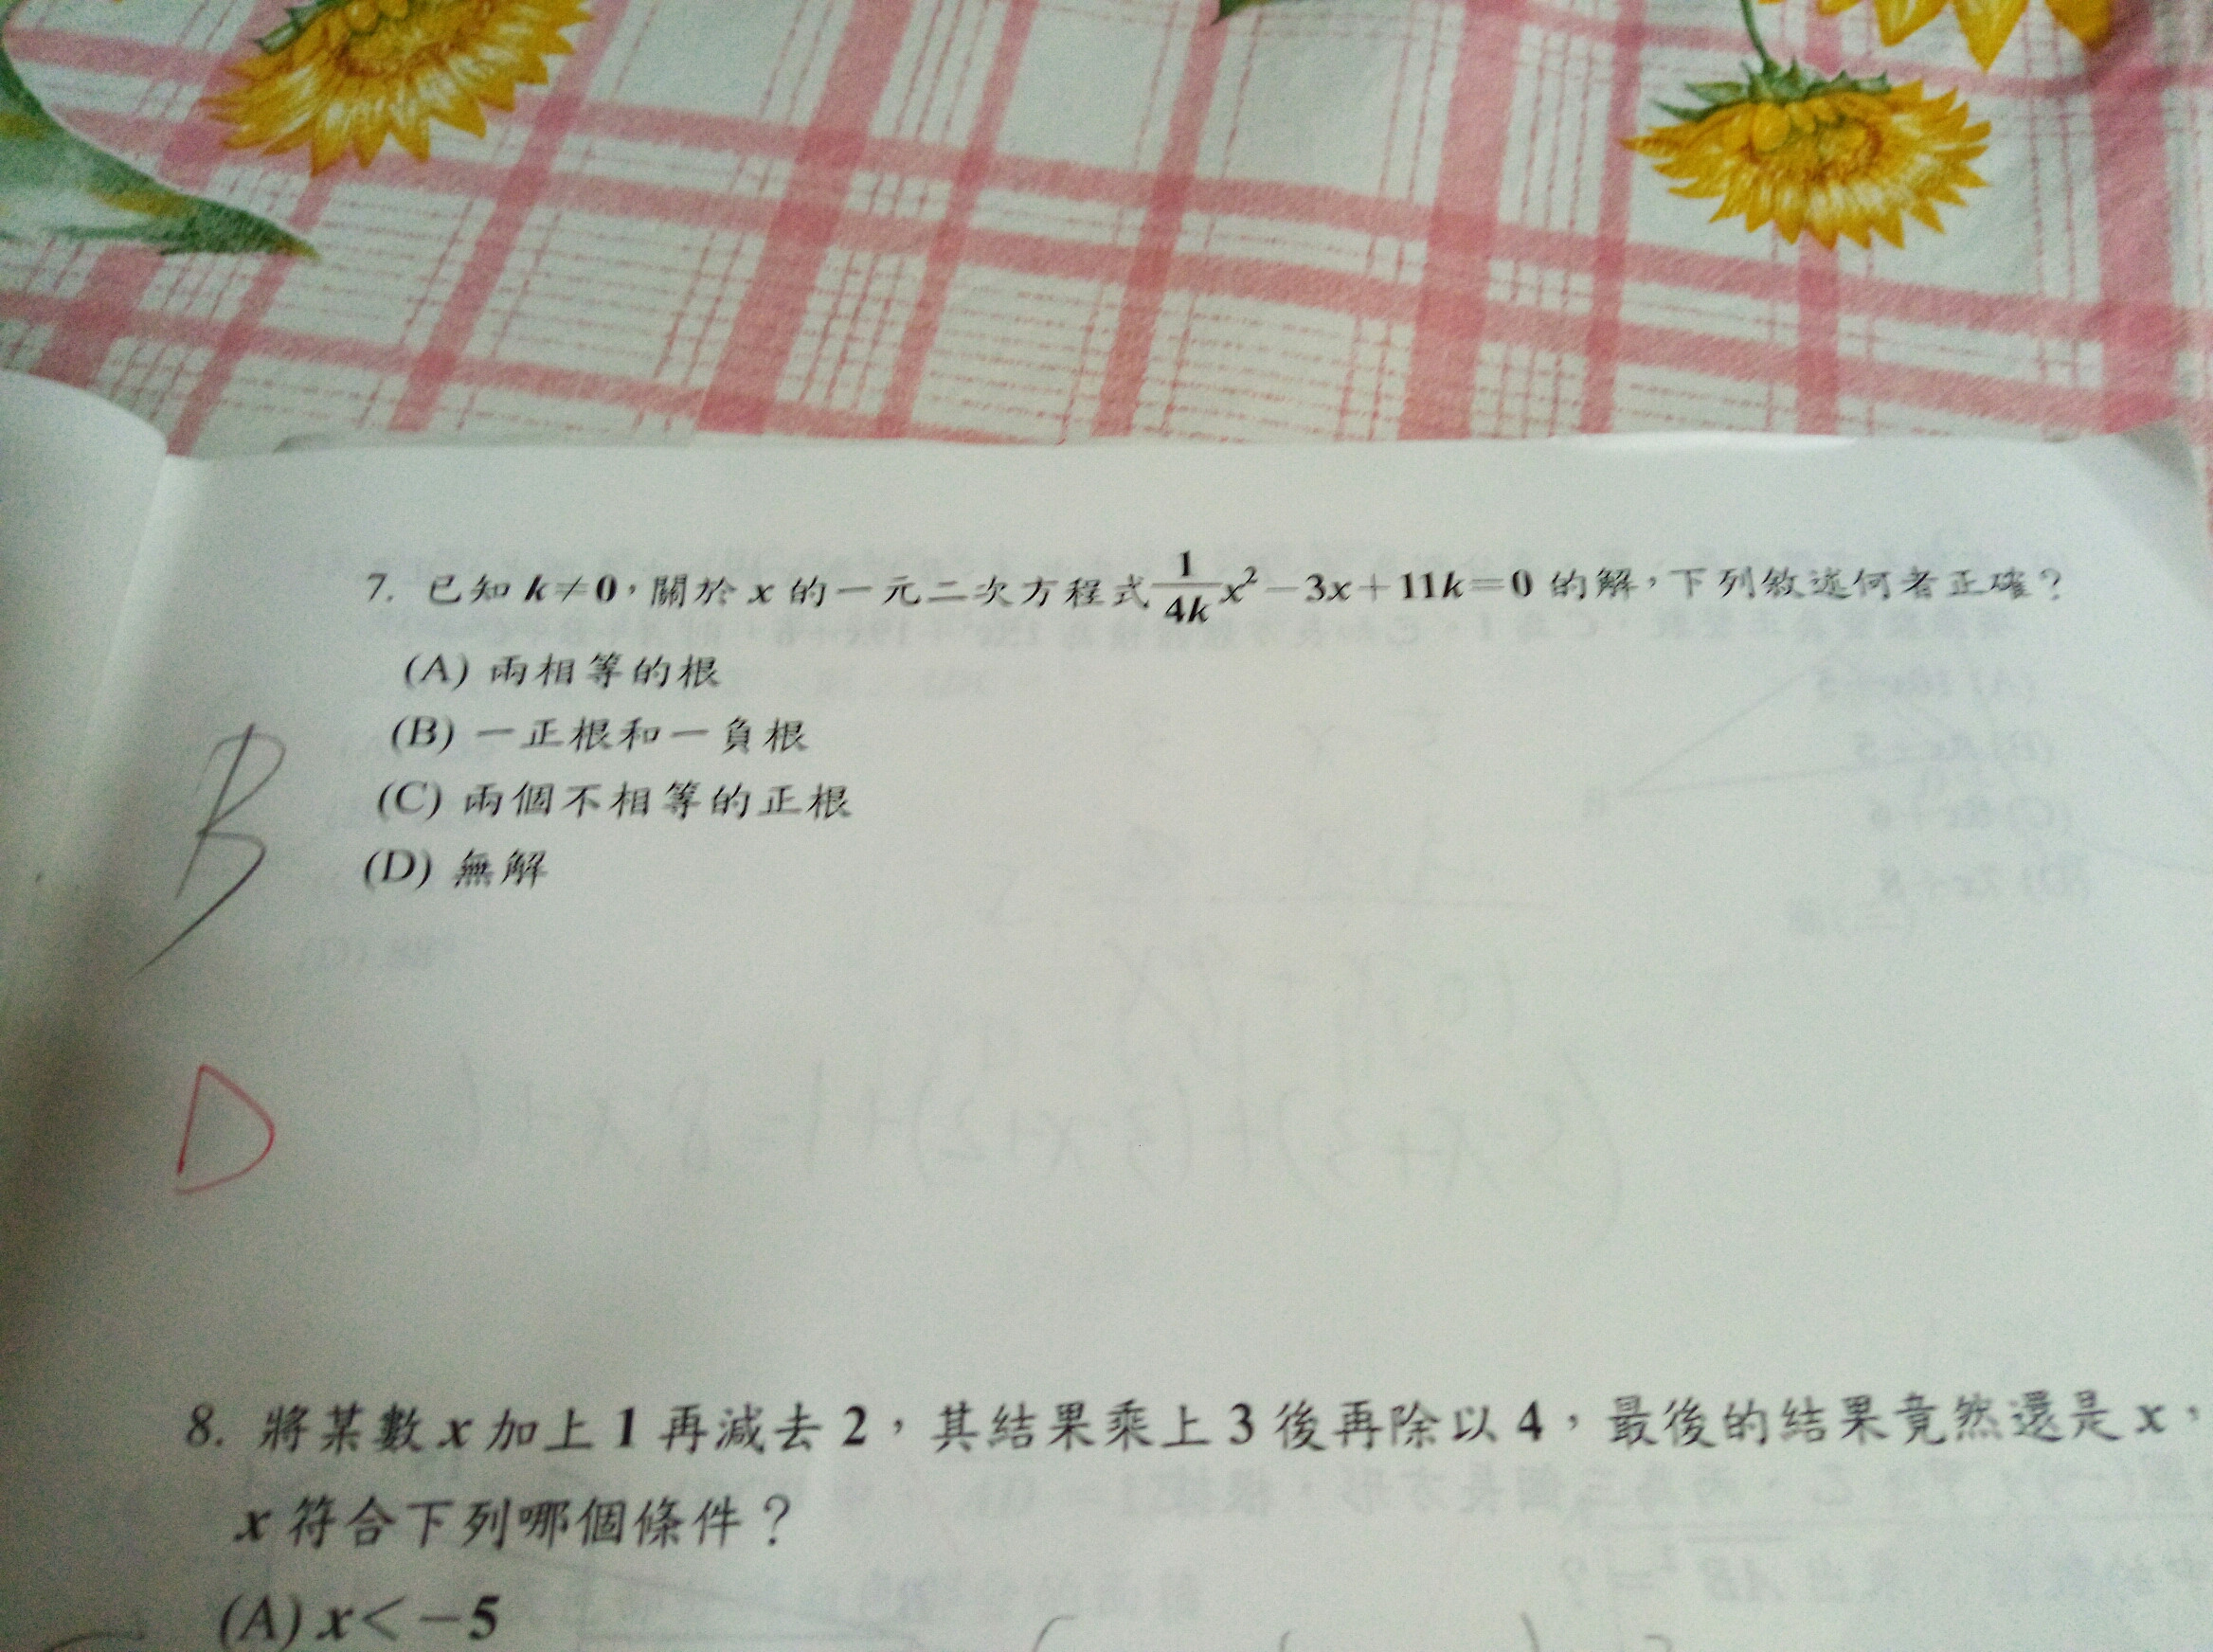 7. 已知 k≠0，關於 x 的一元二次方程式 \frac{1}{4k}x²－3x＋11k＝0 的解，下列敘述何者正確？
(A) 兩相等的根
(B) 一正根和一負根
(C) 兩個不相等的正根
(D) 無解
B
D
8. 將某數 x 加上 1 再減去 2，其結果乘上 3 後再除以 4，最後的結果竟然還是 x，
x 符合下列哪個條件？
(A) x＜－5